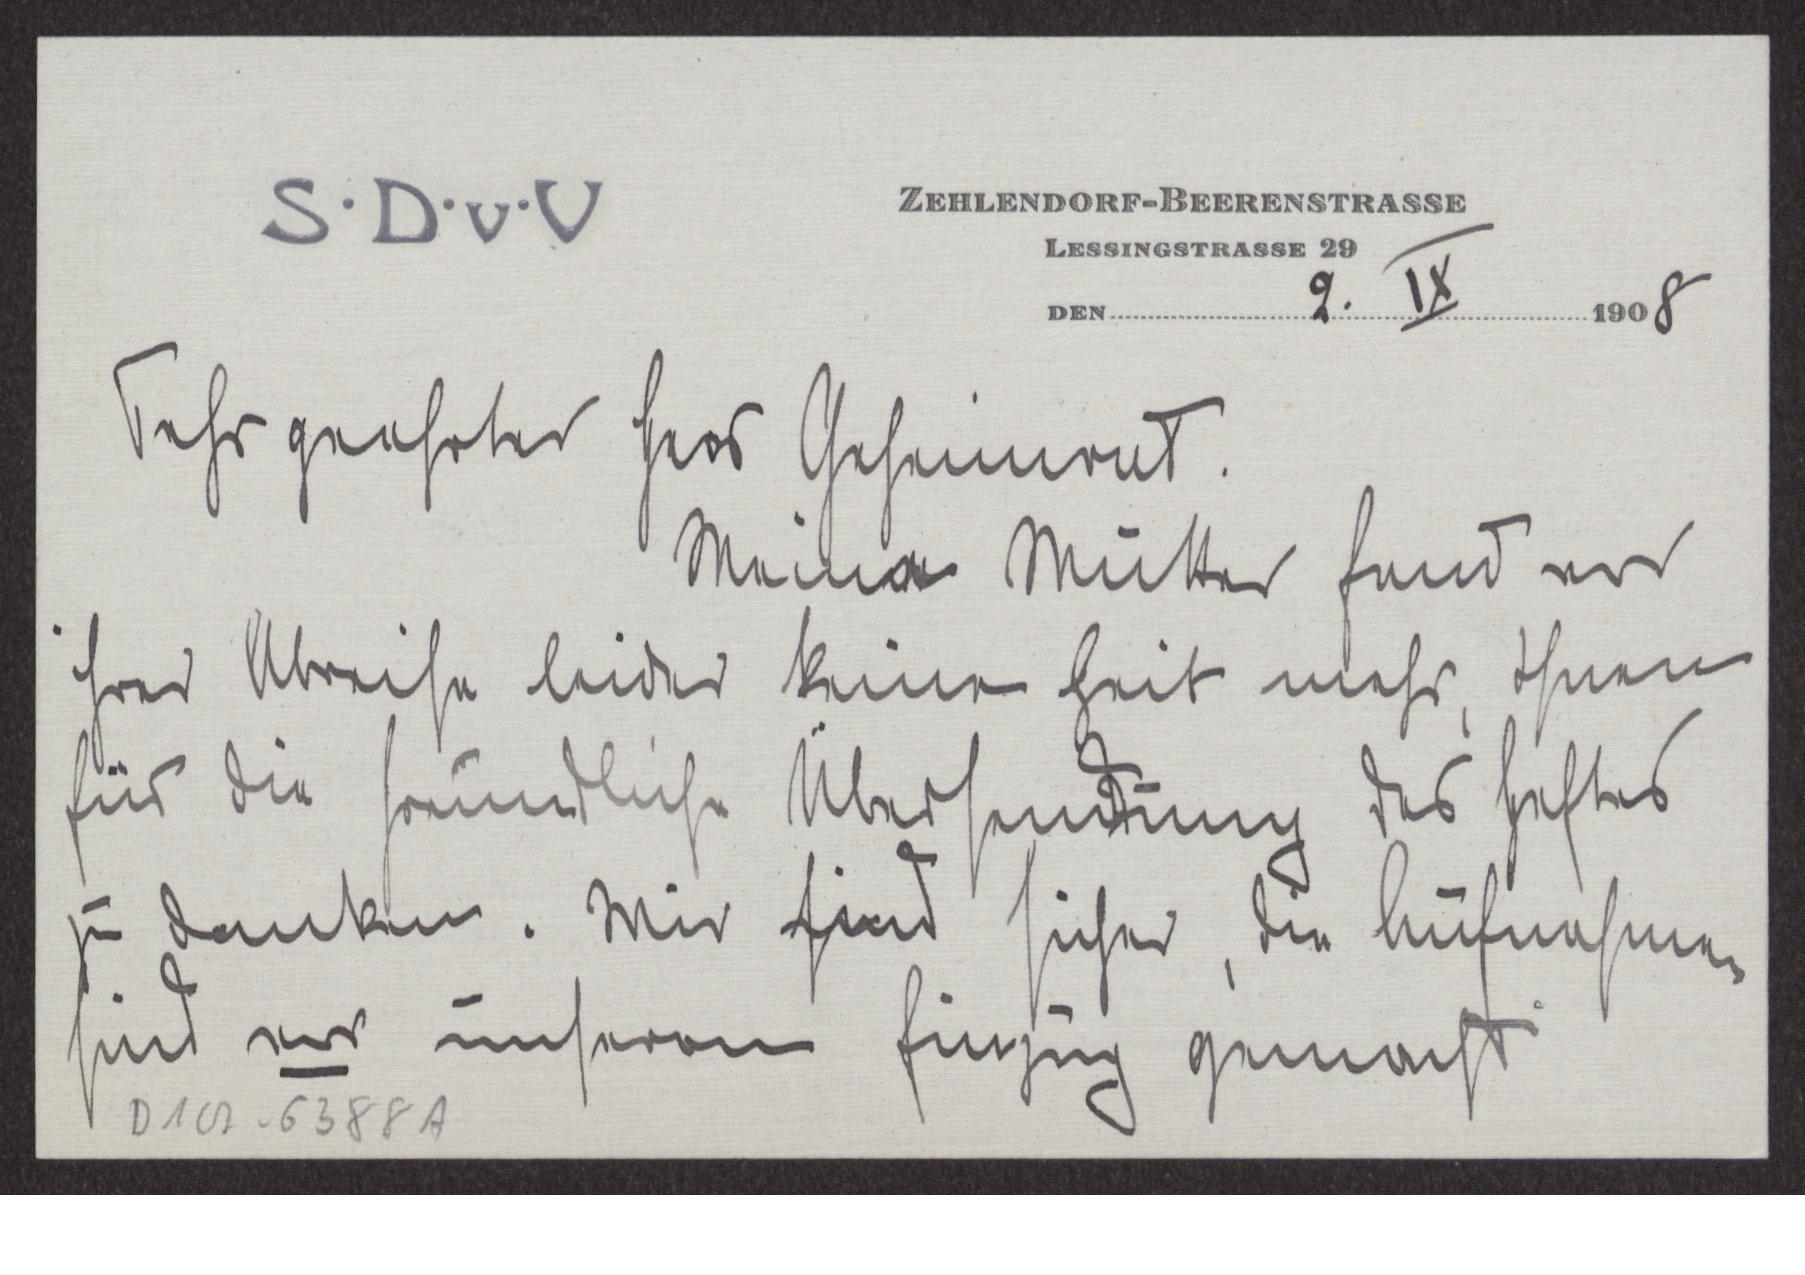 S·D·v·V
ZEHLENDORF-BEERENSTRASSE
LESSINGSTRASSE 29
DEN 2. IX 1908
Sehr geehrter Herr Geheimrat.
Meine Mutter fand vor
ihrer Abreise leider keine Zeit mehr, Ihnen
für die freundliche Übersendung des Heftes
zu danken. Wir sind sicher, die Aufnahmen
sind vor unserem Einzug gemacht
D 107 - 6388 A